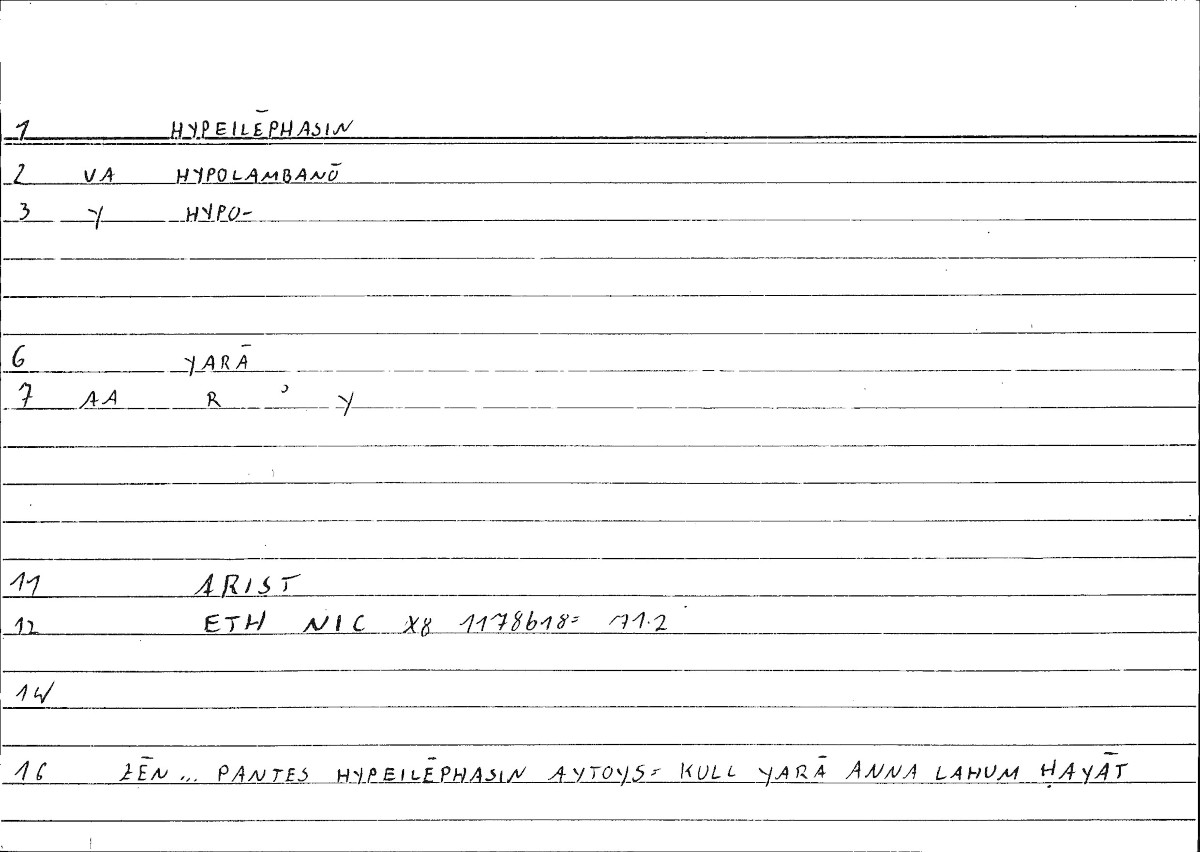 1 HYPEILĒPHASIN
2 VA HYPOLAMBANŌ
3 Y HYPO-
6 YARĀ
7 AA R ʾ Y
11 ARIST
12 ETH NIC X8 1178b18= 71.2
14
16 ZĒN ... PANTES HYPEILĒPHASIN AYTOYS= KULL YARĀ ANNA LAHUM ḤAYĀT